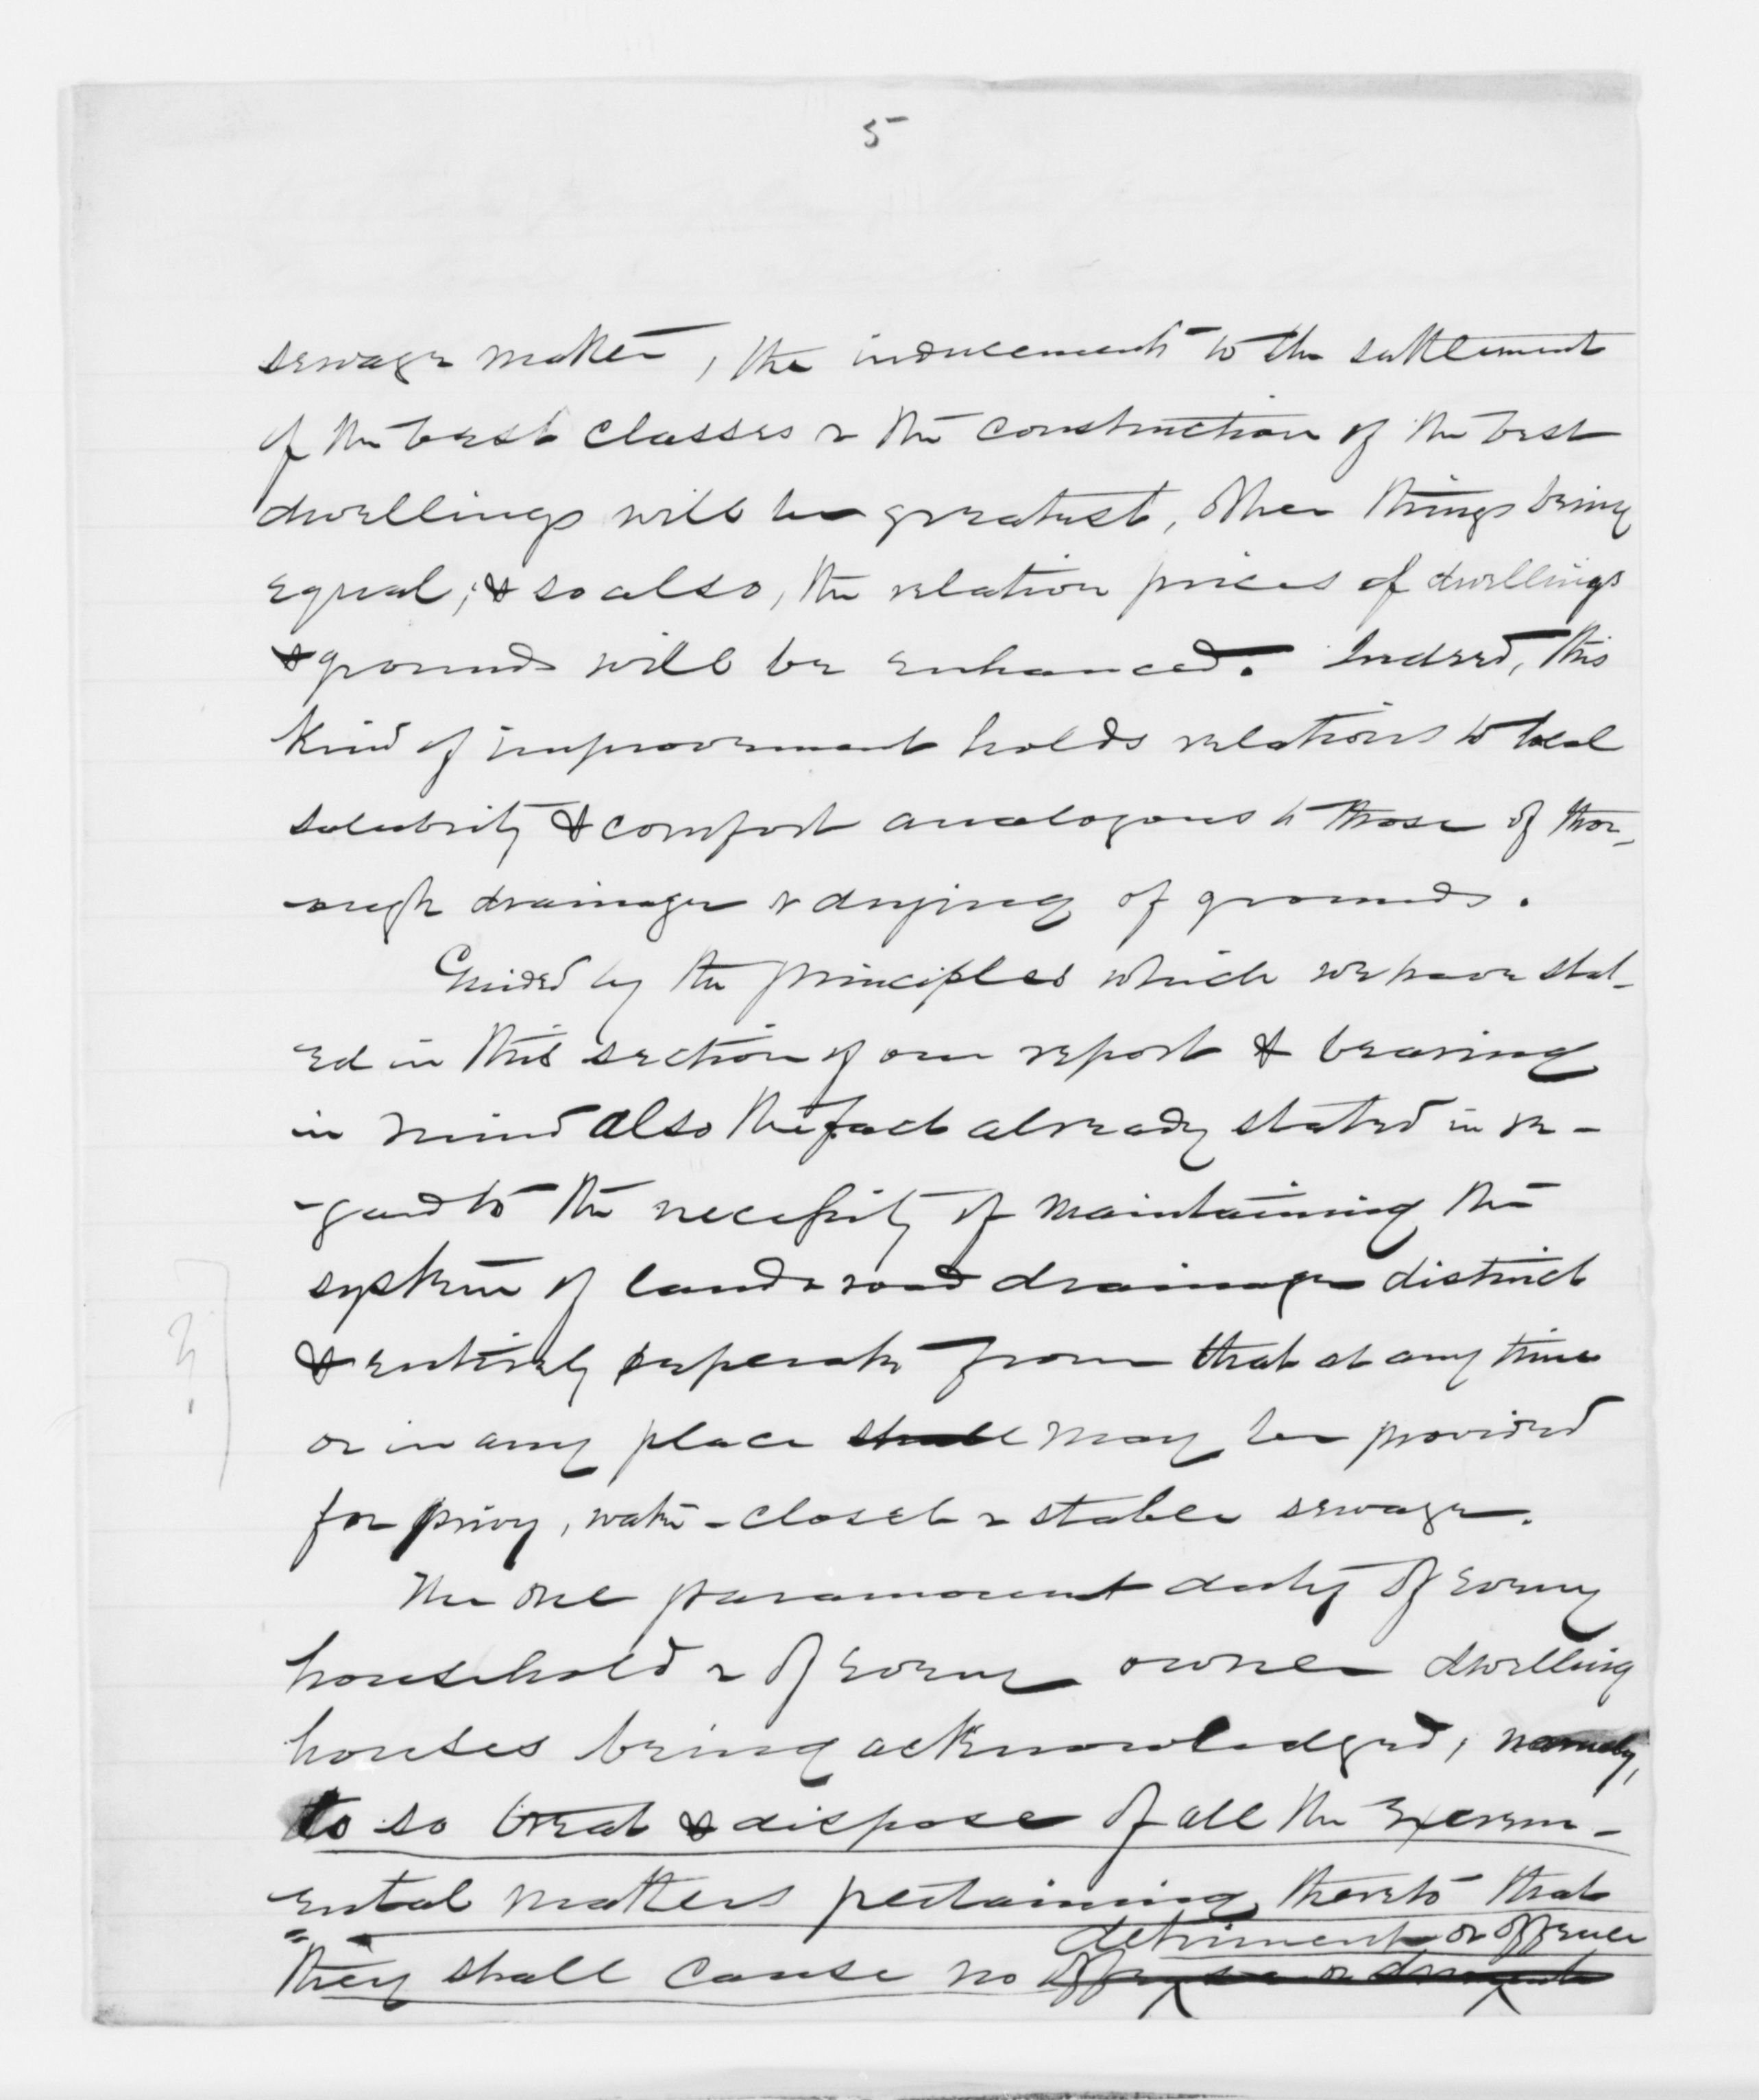 5
sewage matter, the inducements to the settlement
of the best classes & the construction of the best
dwellings will be greatest, other things being
equal; & so also, the relative prices of dwellings
& grounds will be enhanced. Indeed, this
kind of improvement holds relations to local
salubrity & comfort analogous to those of thor-
-ough drainage & drying of grounds.
Guided by the principles which we have stat-
ed in this section of our report & bearing
in mind also the fact already stated in re-
-gard to the necessity of maintaining the
system of land & road drainage distinct
& entirely seperate from that at any time
or in any place shall may be provided
for privy, water-closet & stable sewage.
The one paramount duty of every
household & of every owner dwelling
houses being acknowledged, namely,
to so treat & dispose of all the excrem-
ental matters pertaining thereto that
detriment or offence
they shall cause no offense or